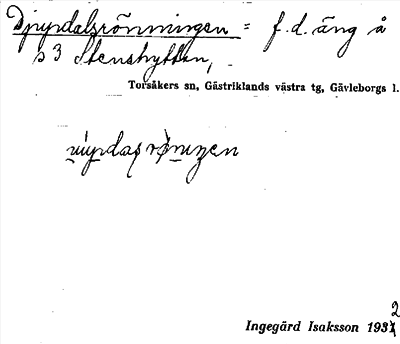 Djupdalsrönningen = f.d. äng å
s3 Stenshyttan,
Torsåkers sn, Gästriklands västra tg, Gävleborgs l.
Ingegärd Isaksson 1932